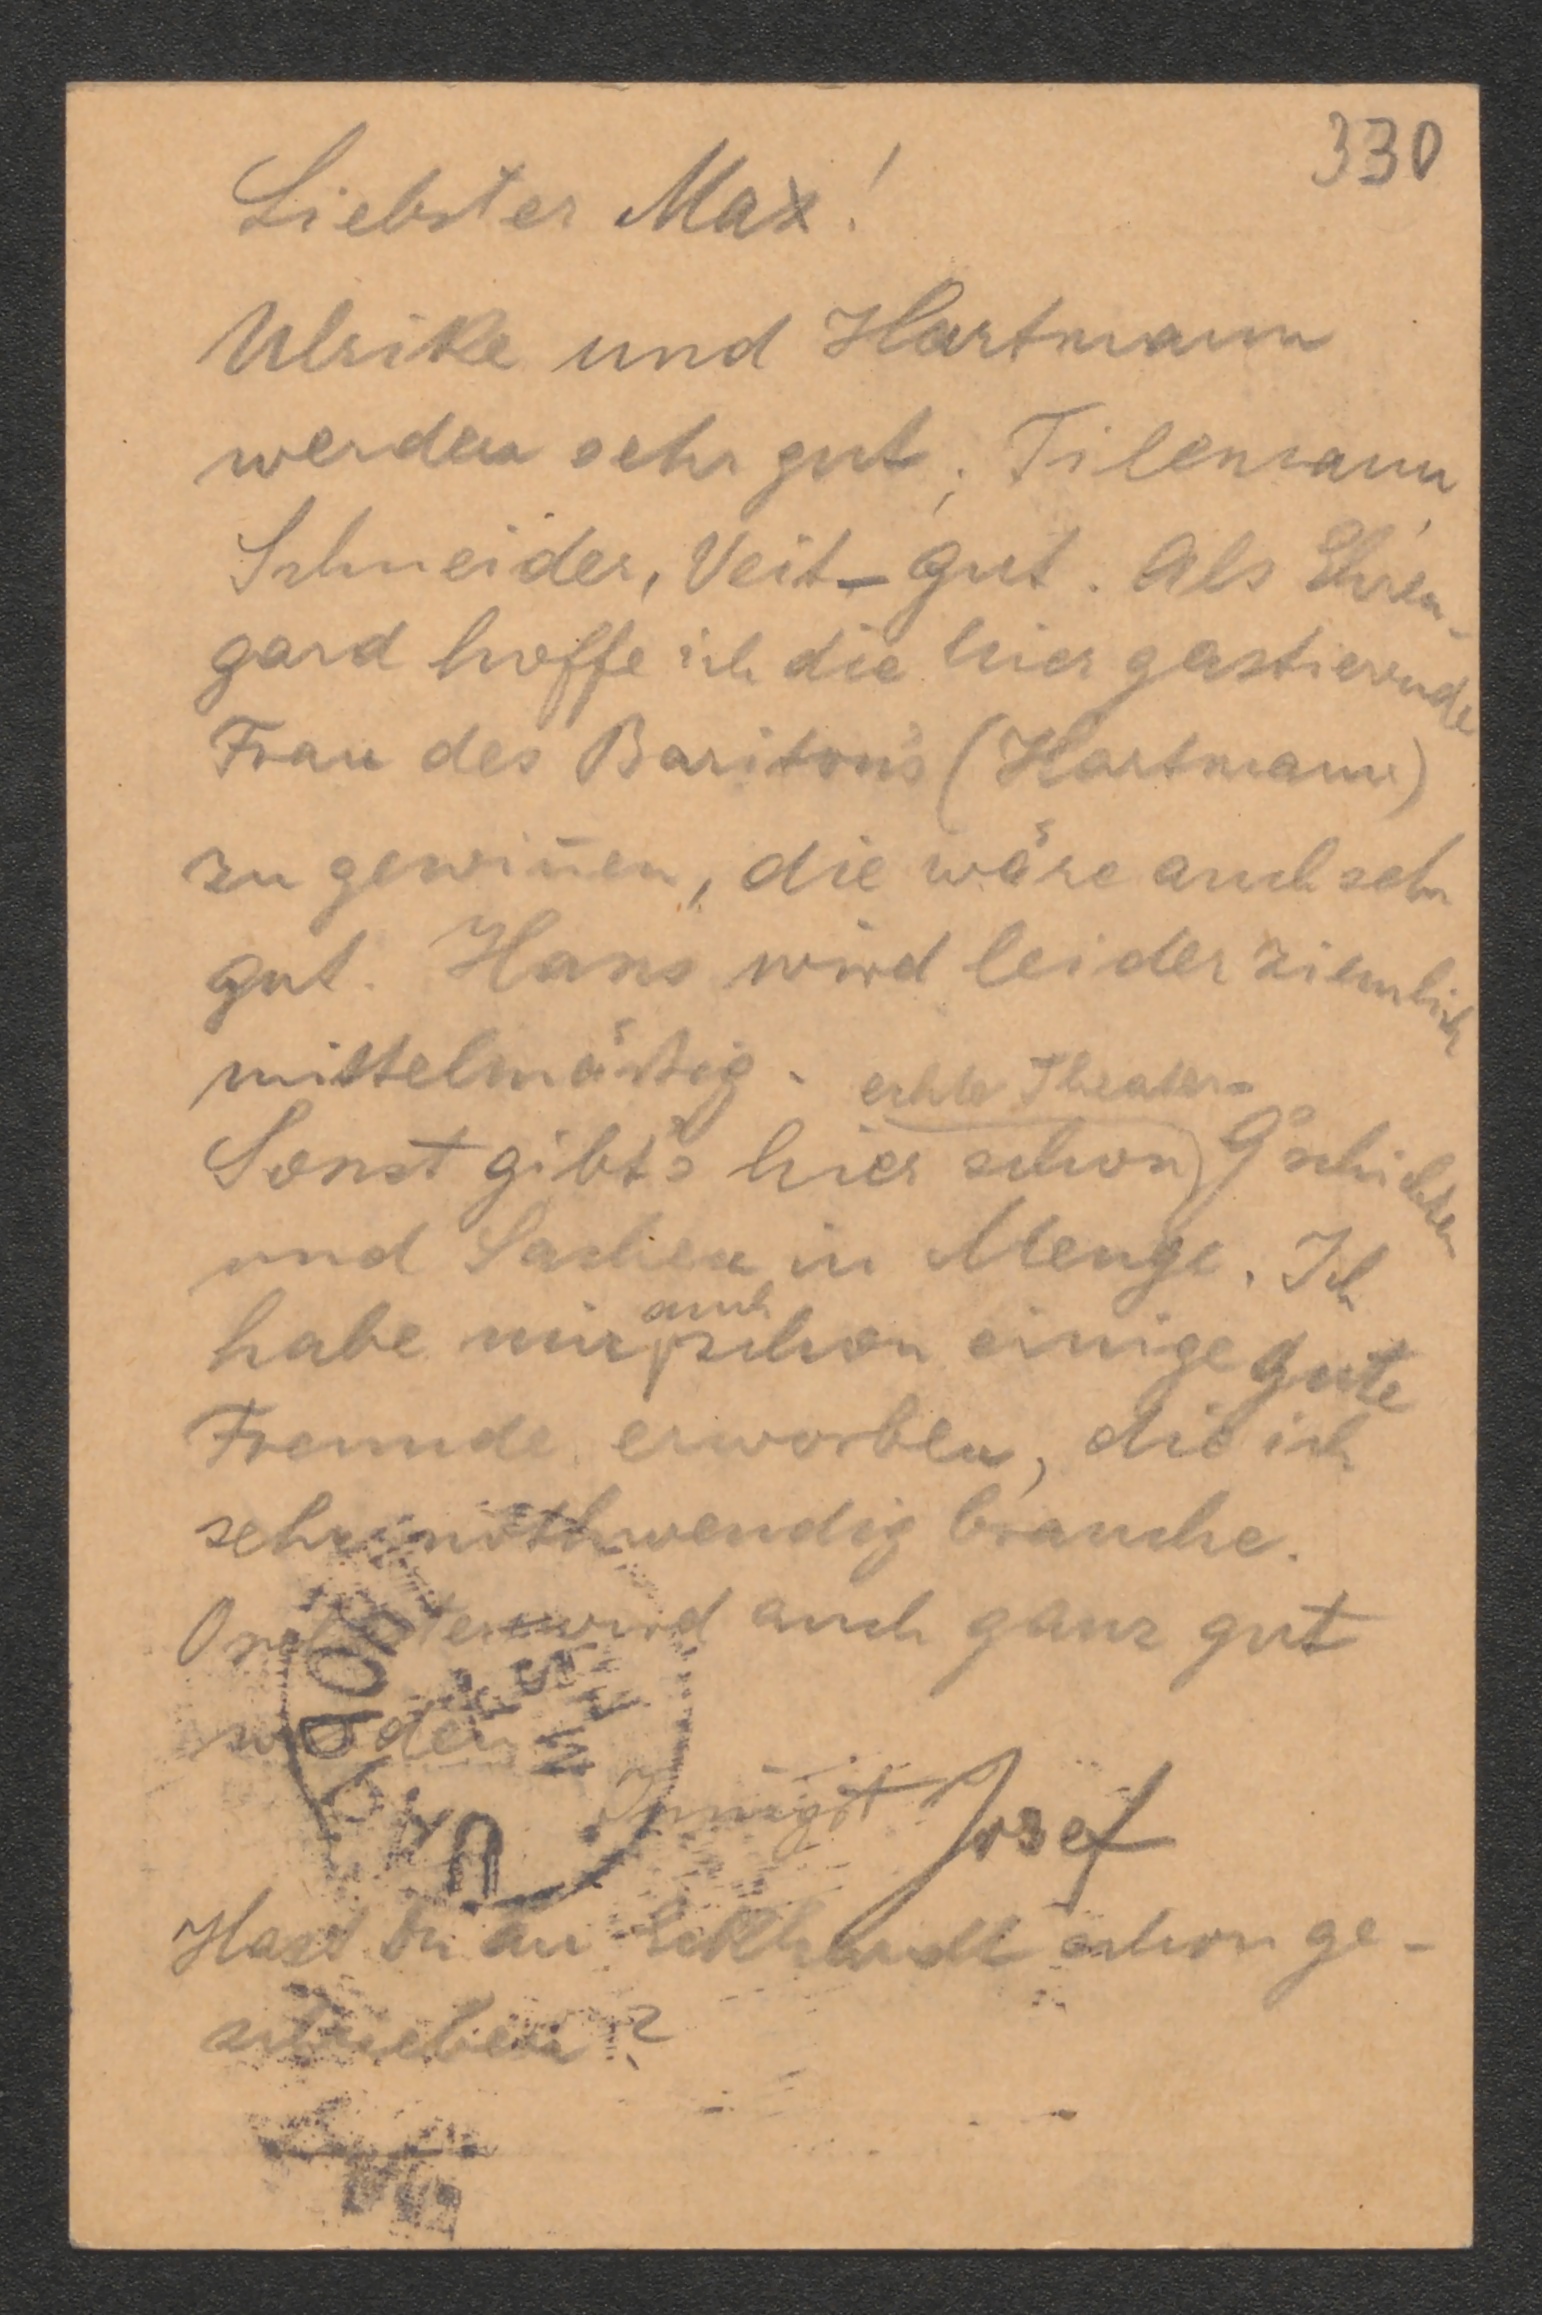 330
Liebster Max!
Ulrike und Hartmann
werden sehr gut; Tilemann,
Schneider, Veit – gut. Als Ehren-
gard hoffe ich die hier gastierende
Frau des Bariton's (Hartmann)
zu gewin̄en, die wäre auch sehr
gut. Hans wird leider ziemlich
mittelmäßig.
echte Theater-
Sonst gibt's hier schon G'schichten
und Sachen in Menge. Ich
auch
habe mir schon einige gute
Freunde erworben, die ich
sehr nothwendig brauche.
Orchester wird auch ganz gut
werden
Innigst Josef
Hast du an Eckhardt schon ge-
schrieben?